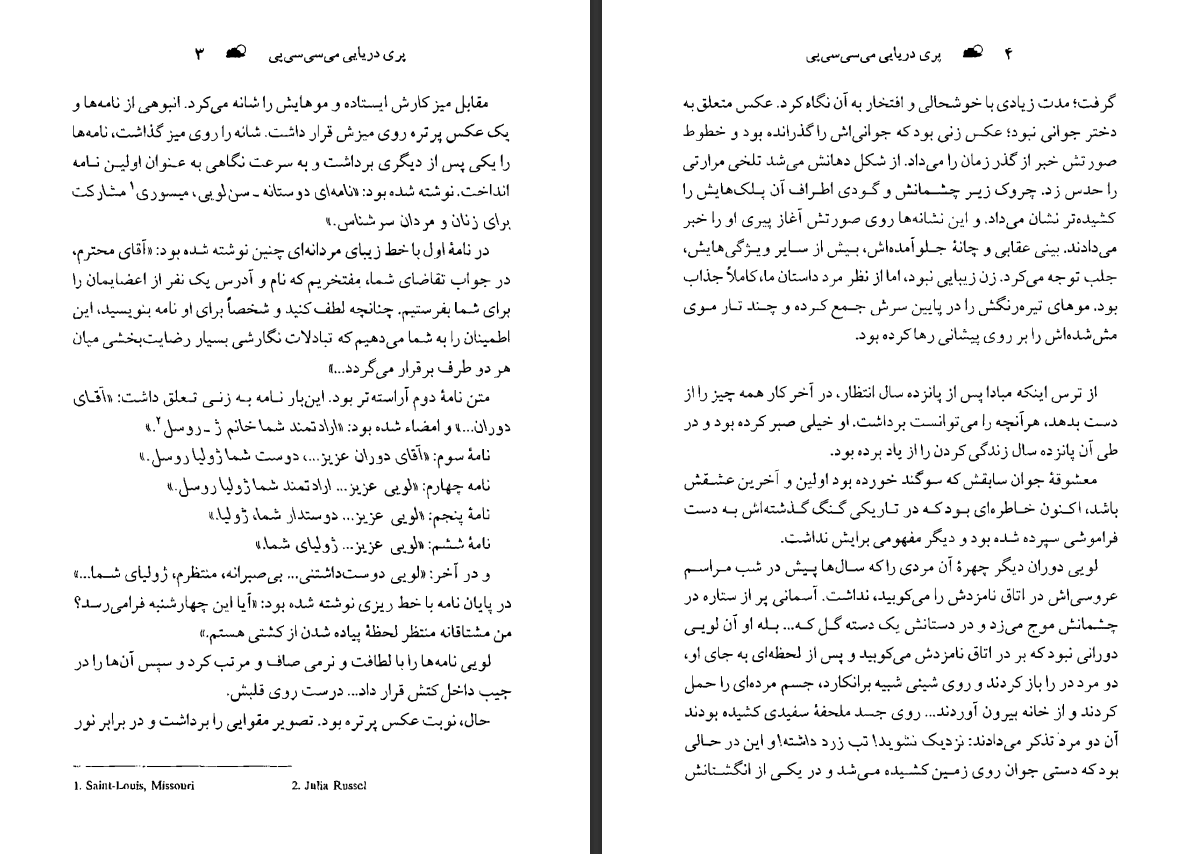 پری دریایی می‌سی‌سی‌پی ۳
مقابل میز کارش ایستاده و موهایش را شانه می‌کرد. انبوهی از نامه‌ها و
یک عکس پرتره روی میزش قرار داشت. شانه را روی میز گذاشت، نامه‌ها
را یکی پس از دیگری برداشت و به سرعت نگاهی به عنوان اولین نامه
انداخت. نوشته شده بود: «نامه‌ای دوستانه ـ سن‌لویی، میسوری۱ مشارکت
برای زنان و مردان سرشناس.»
در نامهٔ اول با خط زیبای مردانه‌ای چنین نوشته شده بود: «آقای محترم،
در جواب تقاضای شما، مفتخریم که نام و آدرس یک نفر از اعضایمان را
برای شما بفرستیم. چنانچه لطف کنید و شخصاً برای او نامه بنویسید، این
اطمینان را به شما می‌دهیم که تبادلات نگارشی بسیار رضایت‌بخشی میان
هر دو طرف برقرار می‌گردد...»
متن نامهٔ دوم آراسته‌تر بود. این‌بار نامه به زنی تعلق داشت: «آقای
دوران...» و امضاء شده بود: «ارادتمند شما خانم ژ ـ روسل۲.»
نامهٔ سوم: «آقای دوران عزیز...، دوست شما ژولیا روسل.»
نامه چهارم: «لویی عزیز... ارادتمند شما ژولیا روسل.»
نامهٔ پنجم: «لویی عزیز... دوستدار شما، ژولیا.»
نامهٔ ششم: «لویی عزیز... ژولیای شما.»
و در آخر: «لویی دوست‌داشتنی... بی‌صبرانه، منتظرم، ژولیای شما...»
در پایان نامه با خط ریزی نوشته شده بود: «آیا این چهارشنبه فرامی‌رسد؟
من مشتاقانه منتظر لحظهٔ پیاده شدن از کشتی هستم.»
لویی نامه‌ها را با لطافت و نرمی صاف و مرتب کرد و سپس آن‌ها را در
جیب داخل کتش قرار داد... درست روی قلبش.
حال، نوبت عکس پرتره بود. تصویر مقوایی را برداشت و در برابر نور
1. Saint-Louis, Missouri 2. Julia Russel
۴ پری دریایی می‌سی‌سی‌پی
گرفت؛ مدت زیادی با خوشحالی و افتخار به آن نگاه کرد. عکس متعلق به
دختر جوانی نبود؛ عکس زنی بود که جوانی‌اش را گذرانده بود و خطوط
صورتش خبر از گذر زمان را می‌داد. از شکل دهانش می‌شد تلخی مرارتی
را حدس زد. چروک زیر چشمانش و گودی اطراف آن پلک‌هایش را
کشیده‌تر نشان می‌داد. و این نشانه‌ها روی صورتش آغاز پیری او را خبر
می‌دادند. بینی عقابی و چانهٔ جلوآمده‌اش، بیش از سایر ویژگی‌هایش،
جلب توجه می‌کرد. زن زیبایی نبود، اما از نظر مرد داستان ما، کاملاً جذاب
بود. موهای تیره‌رنگش را در پایین سرش جمع کرده و چند تار موی
مش‌شده‌اش را بر روی پیشانی رها کرده بود.
از ترس اینکه مبادا پس از پانزده سال انتظار، در آخر کار همه چیز را از
دست بدهد، هرآنچه را می‌توانست برداشت. او خیلی صبر کرده بود و در
طی آن پانزده سال زندگی کردن را از یاد برده بود.
معشوقهٔ جوان سابقش که سوگند خورده بود اولین و آخرین عشقش
باشد، اکنون خاطره‌ای بود که در تاریکی گنگ گذشته‌اش به دست
فراموشی سپرده شده بود و دیگر مفهومی برایش نداشت.
لویی دوران دیگر چهرهٔ آن مردی را که سال‌ها پیش در شب مراسم
عروسی‌اش در اتاق نامزدش را می‌کوبید، نداشت. آسمانی پر از ستاره در
چشمانش موج می‌زد و در دستانش یک دسته گل که... بله او آن لویی
دورانی نبود که بر در اتاق نامزدش می‌کوبید و پس از لحظه‌ای به جای او،
دو مرد در را باز کردند و روی شیئی شبیه برانکارد، جسم مرده‌ای را حمل
کردند و از خانه بیرون آوردند... روی جسد ملحفهٔ سفیدی کشیده بودند
آن دو مرد تذکر می‌دادند: نزدیک نشوید! تب زرد داشته! و این در حالی
بود که دستی جوان روی زمین کشیده می‌شد و در یکی از انگشتانش